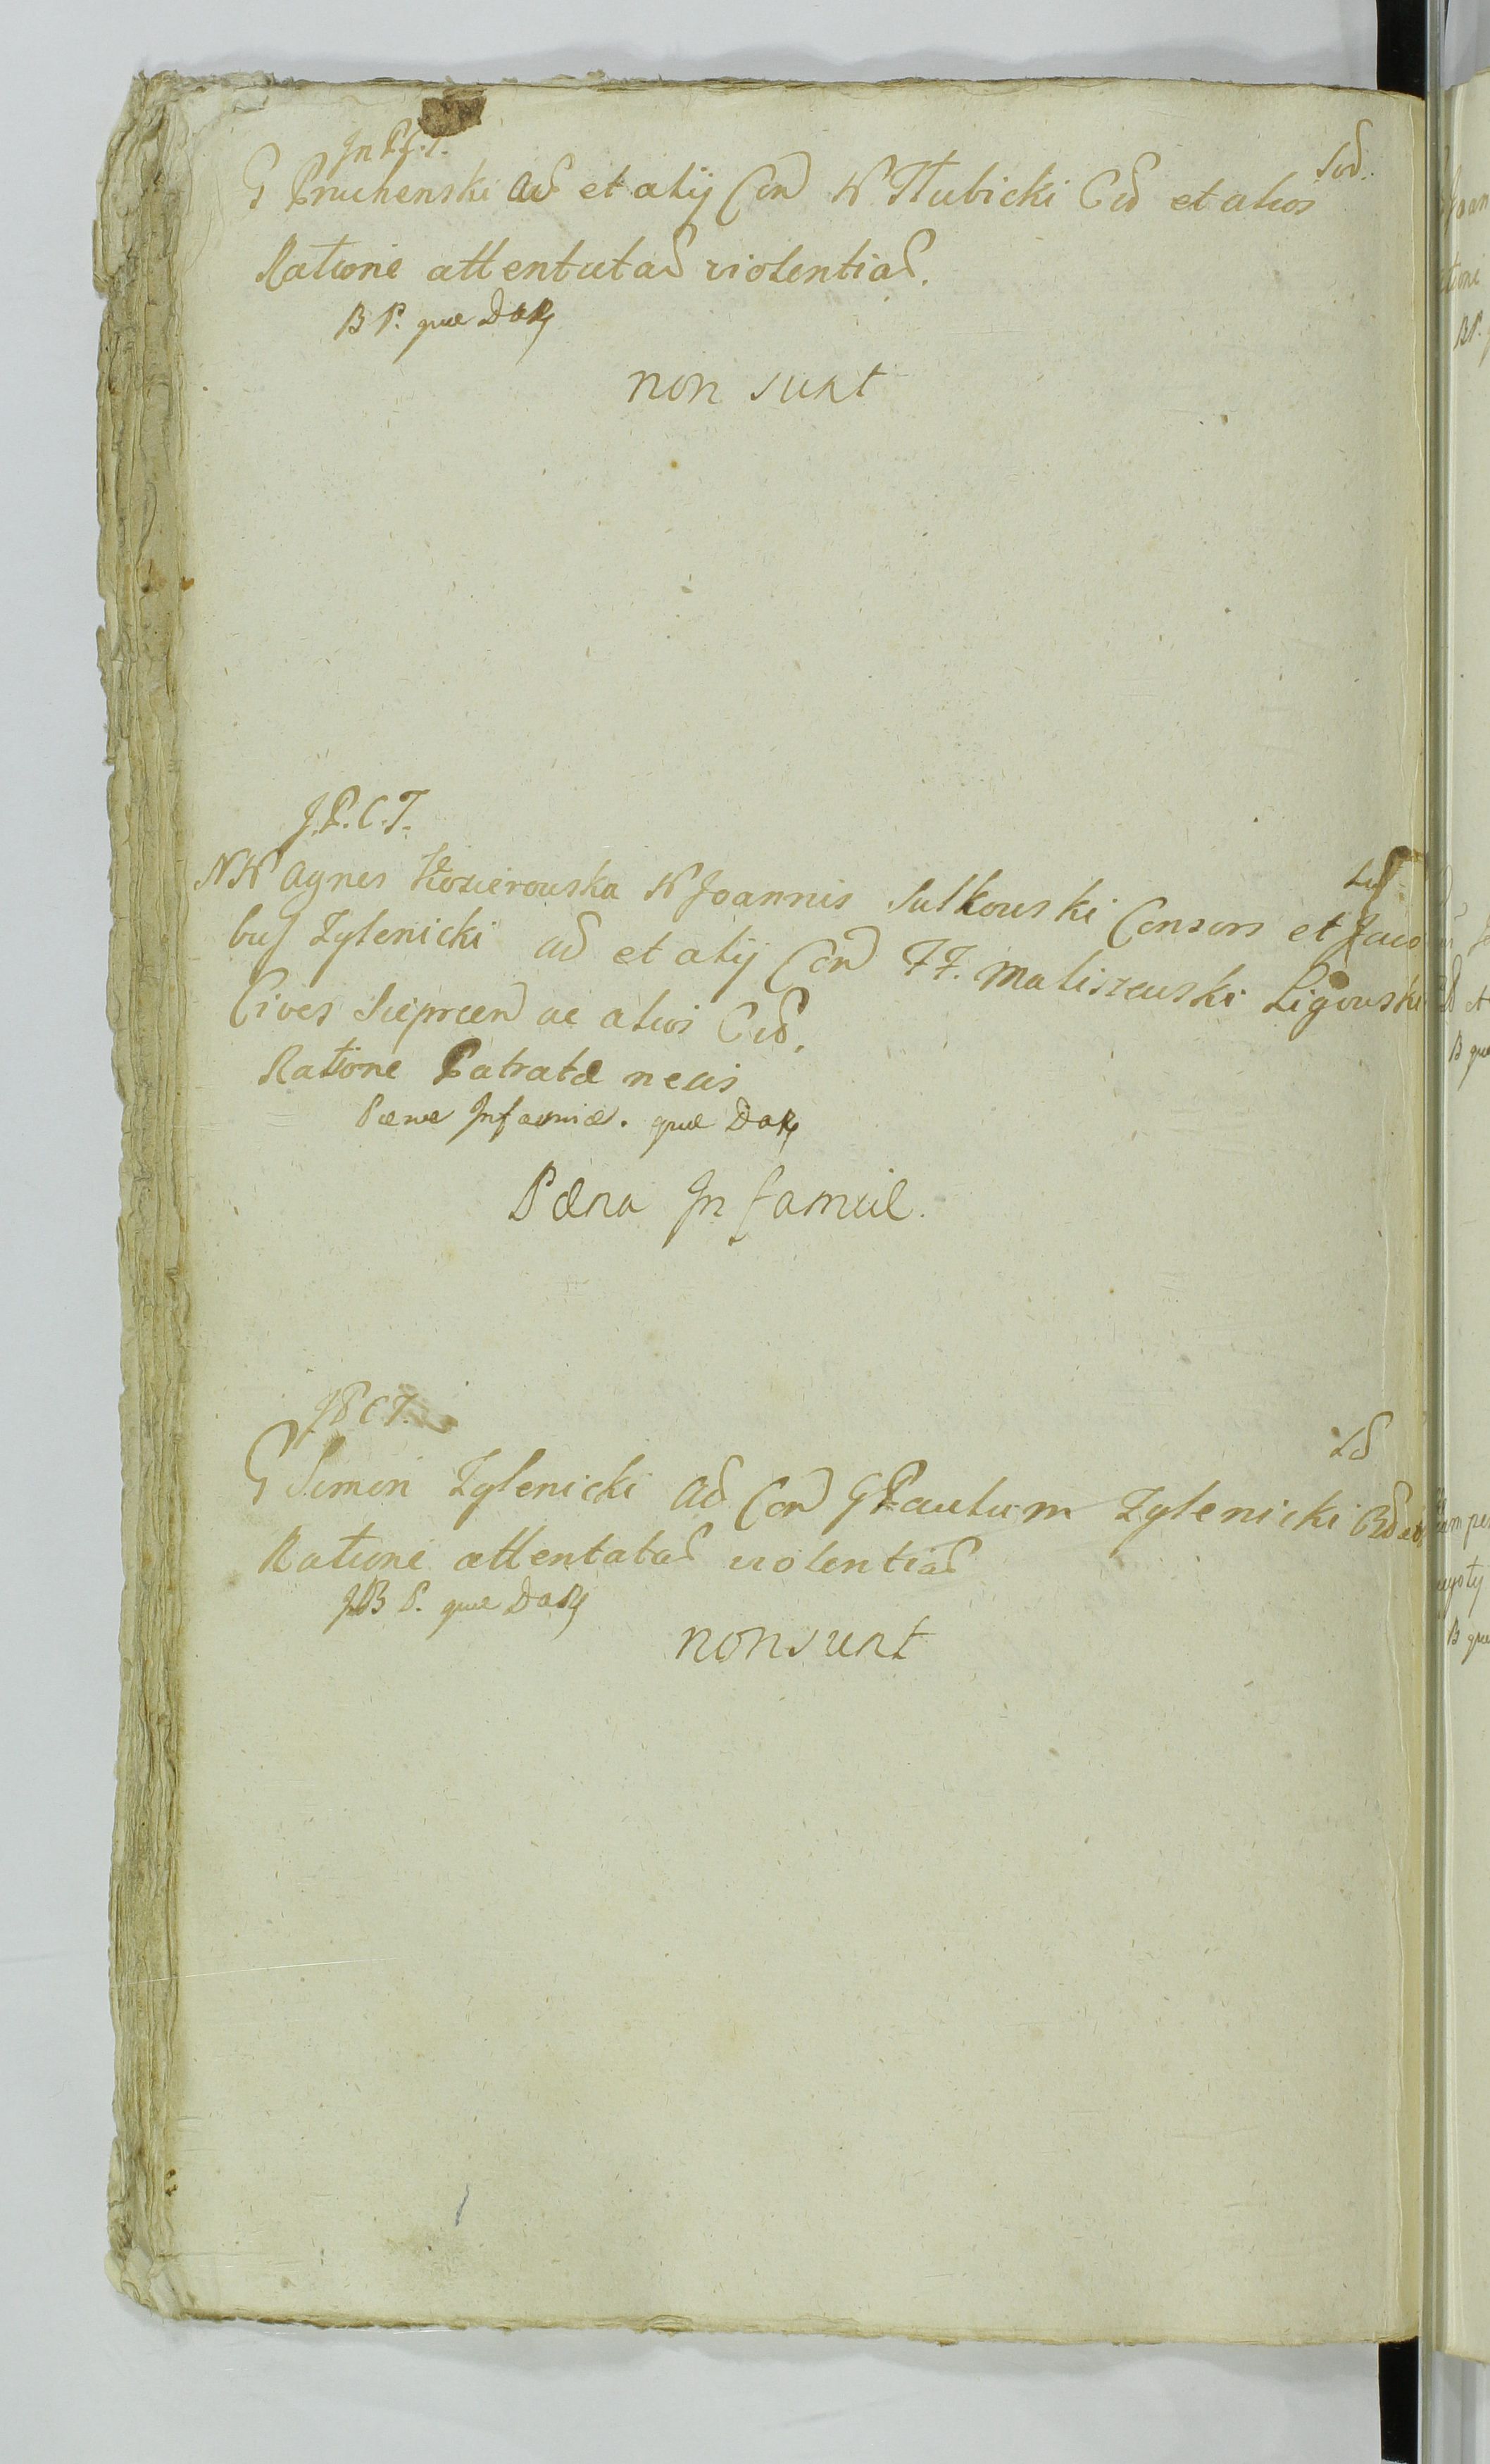 In P.C.T.
Sud.
G Pruchenski Ad et alij Con W Tłubicki Cid et alios
Ratione attentatad violentiad.
B P. quæ DaRj
non sunt
J.P.C.T.
NW Agnes Kozierowska W Joannis Sulkowski Consors et Jaco
bus Zylenicki ad et alij Con FF. Maliszewski Ligowski
Cives Sieprcen ac alios Cid.
Ratione Patratæ necis
Pænæ Infamiæ. quæ DaRj
Pæna Infamiæ.
JPCT.
Sd
G Simon Zylenicki Ad Con G Paulum Zylenicki
Ratione attentatad violentiad
JB P. quæ DaRj
non sunt